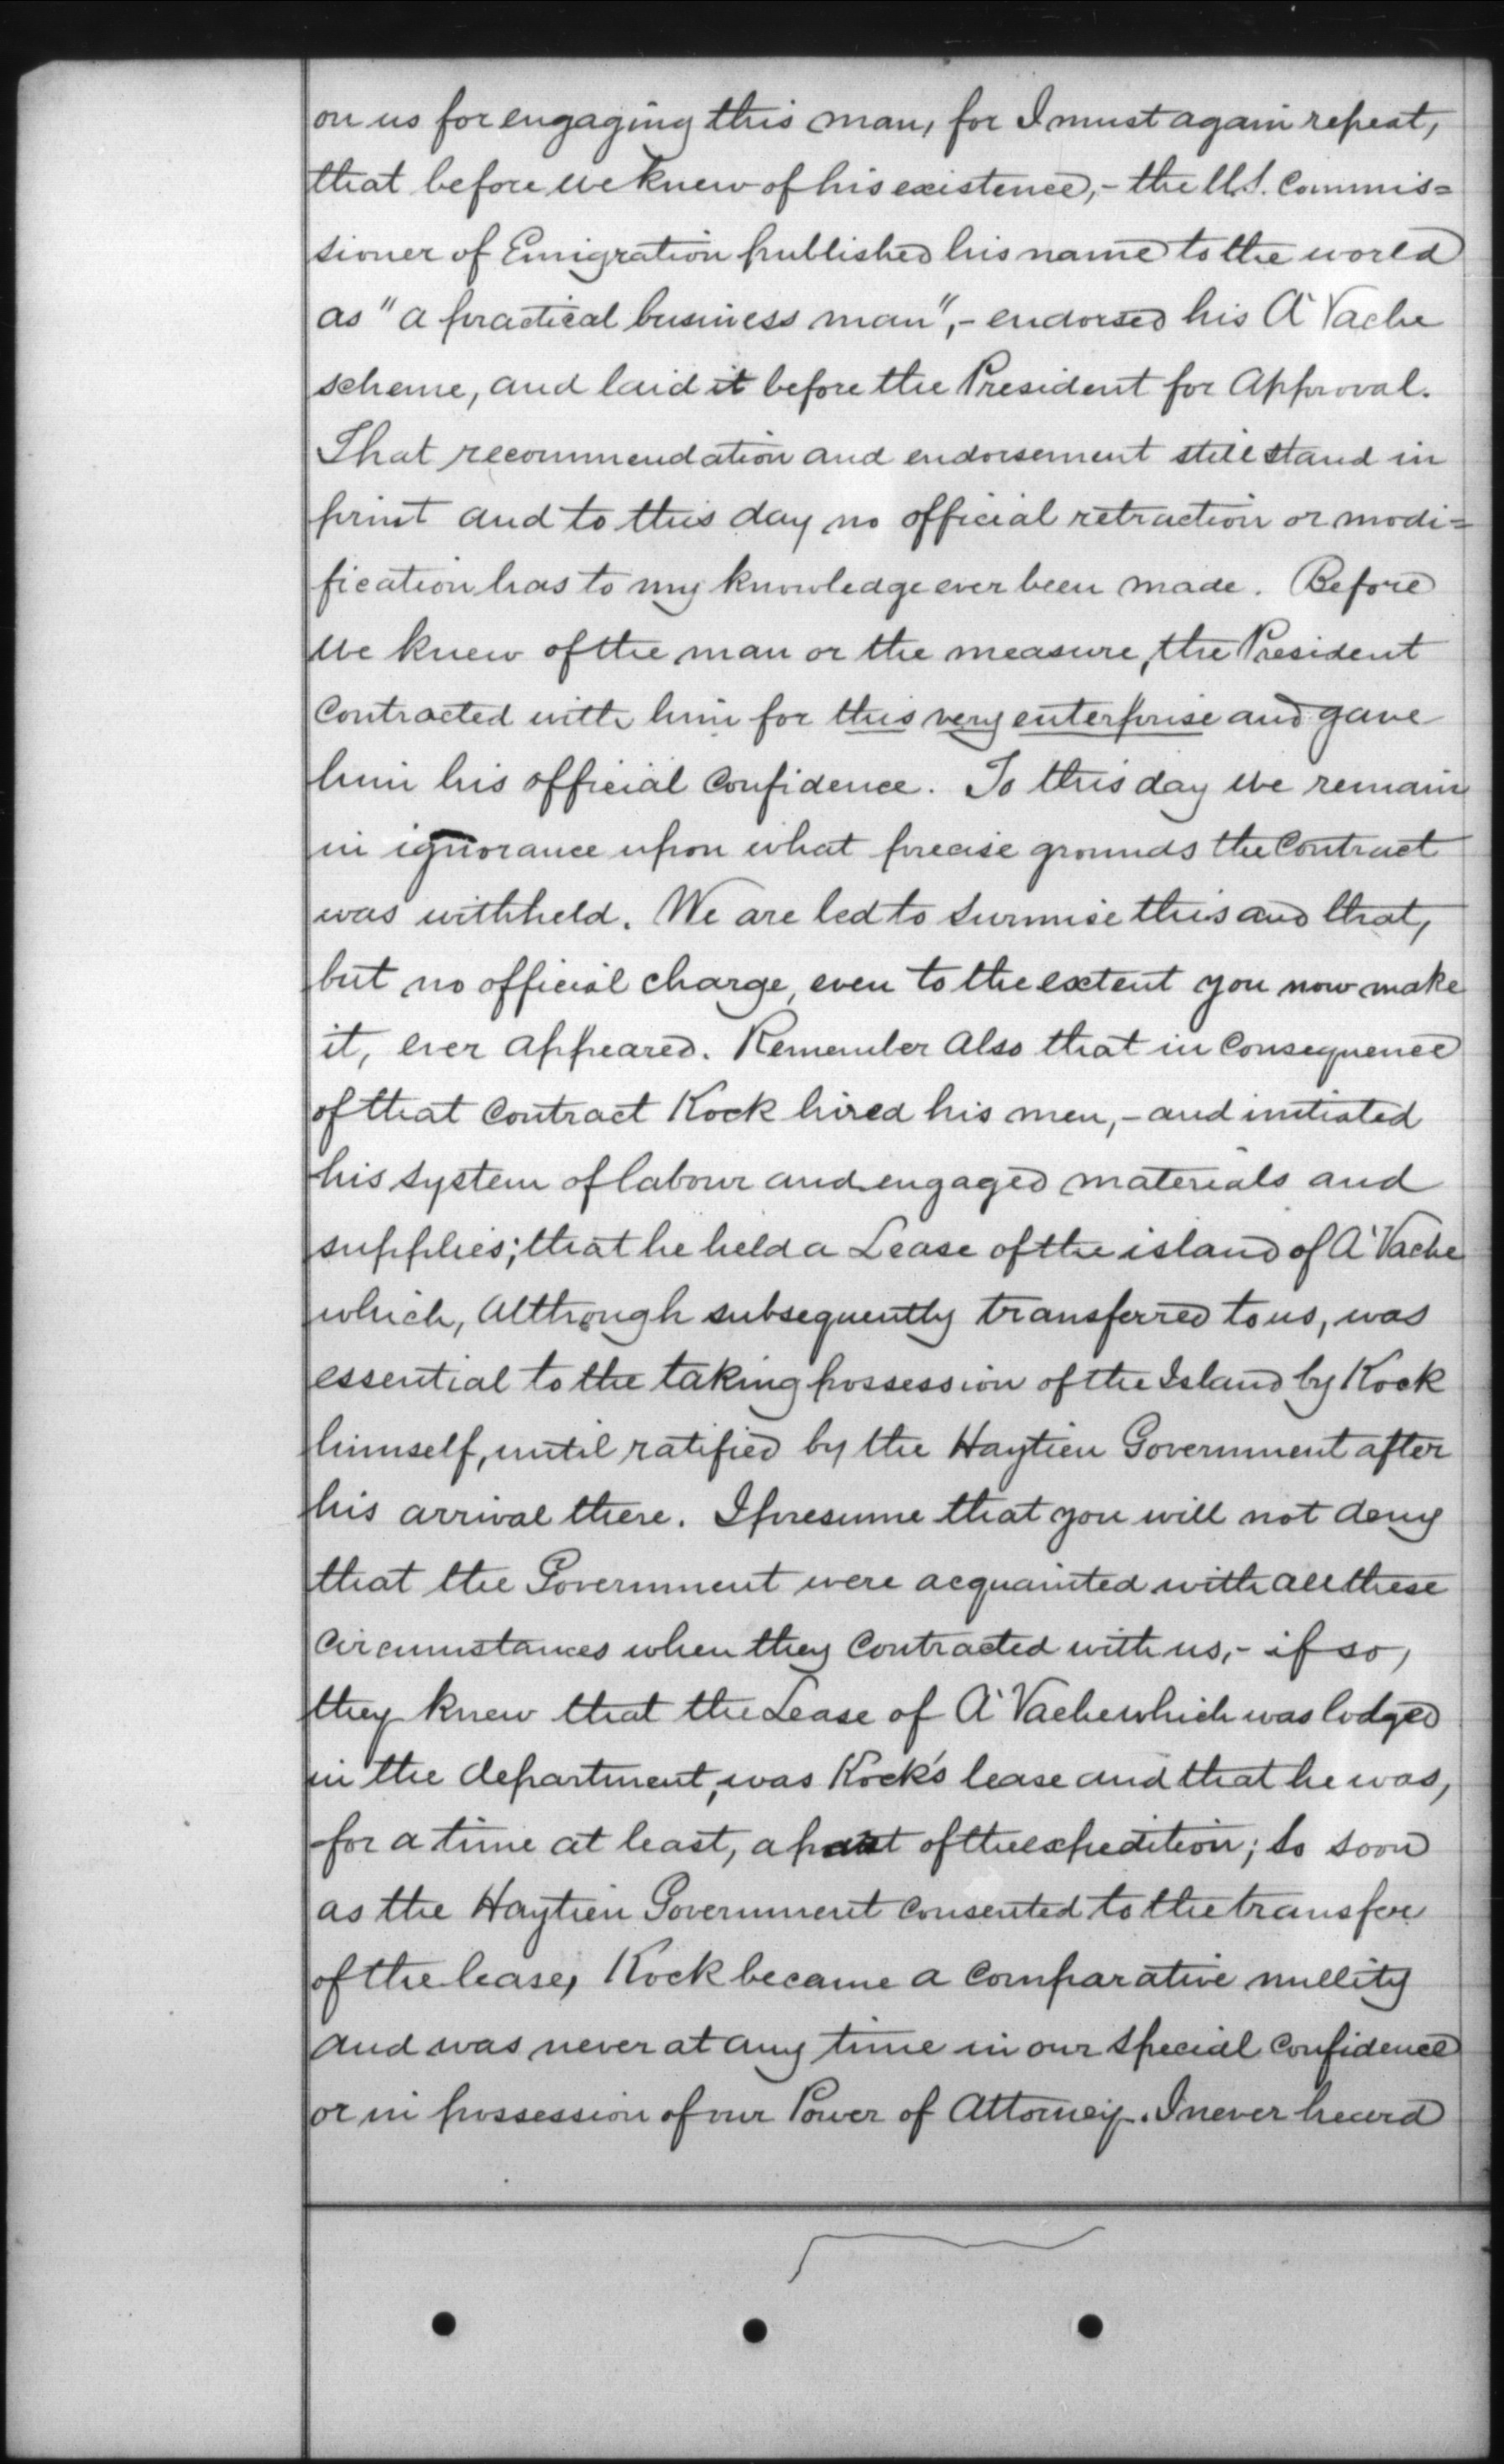 on us for engaging this man, for I must again repeat,
that before we knew of his existence,- the U.S. Commis=
sioner of Emigration published his name to the world
as "a practical business man",- endorsed his A' Vache
scheme, and laid it before the President for Approval.
That recommendation and endorsement still stand in
print and to this day no official retraction or modi=
fication has to my knowledge ever been made. Before
we knew of the man or the measure, the President
contracted with him for this very enterprise and gave
him his official confidence. To this day we remain
in ignorance upon what precise grounds the Contract
was withheld. We are led to surmise this and that,
but no official charge, even to the extent you now make
it, ever appeared. Remember also that in consequence
of that contract Kock hired his men,- and initiated
his system of labour and engaged materials and
supplies; that he held a Lease of the island of A' Vache
which, although subsequently transferred to us, was
essential to the taking possession of the Island by Kock
himself, until ratified by the Haytien Government after
his arrival there. I presume that you will not deny
that the Government were acquainted with all these
circumstances when they contracted with us,- if so,
they knew that the Lease of A' Vache which was lodged
in the department, was Kock's lease and that he was,
for a time at least, a part of the expedition; so soon
as the Haytien Government consented to the transfer
of the lease, Kock became a comparative nullity
and was never at any time in our special confidence
or in possession of our Power of Attorney. I never heard